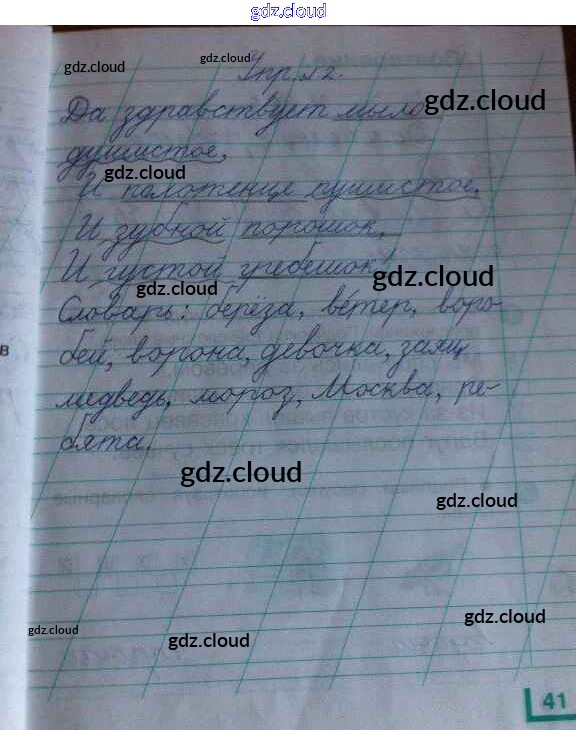 gdz.cloud
gdz.cloud
gdz.cloud
Упр. 12.
Да здравствует мыло
gdz.cloud
душистое,
И полотенце пушистое,
И зубной порошок,
И густой гребешок!
gdz.cloud
gdz.cloud
Словарь: берёза, ветер, воро-
бей, ворона, девочка, заяц
медведь, мороз, Москва, ре-
бята.
gdz.cloud
gdz.cloud
gdz.cloud
gdz.cloud
gdz.cloud
41